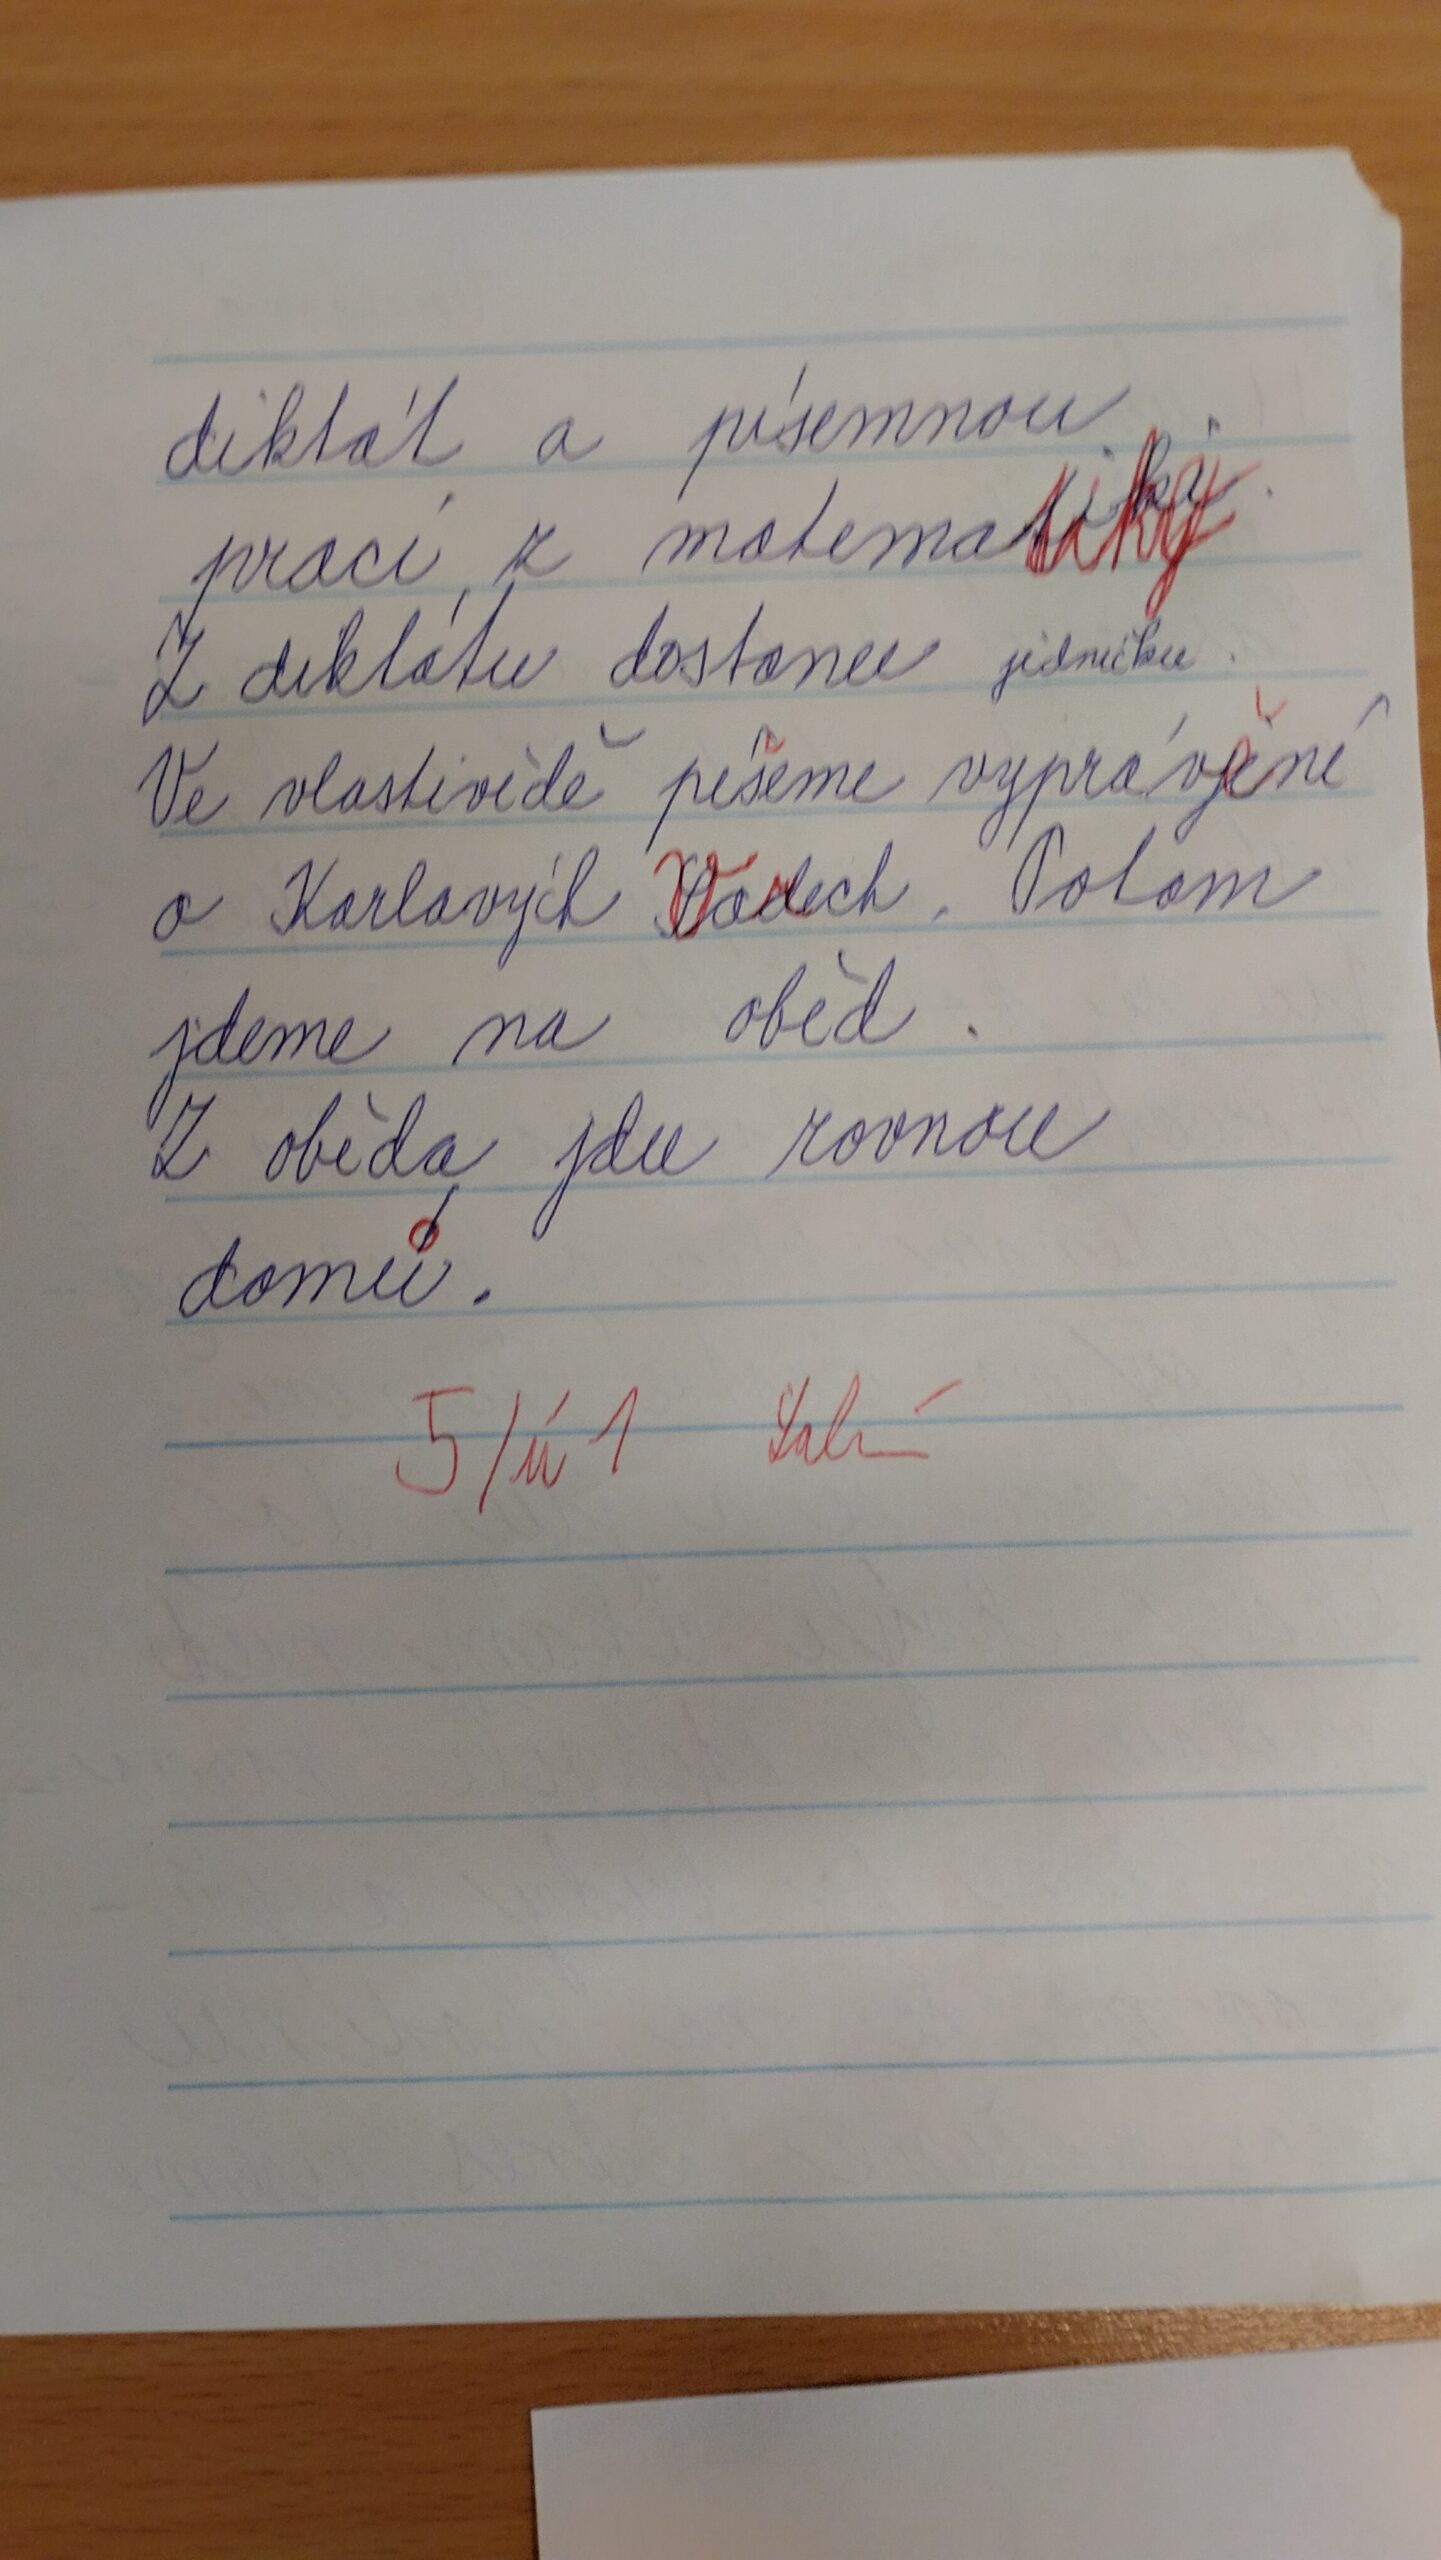 diktát a písemnou
prací z matematiky.
Z diktátu dostanu jedničku.
Ve vlastivědě píšeme vyprávění
o Karlových Varech. Potom
jdeme na oběd.
Z oběda jdu rovnou
domů.
5/ú 1